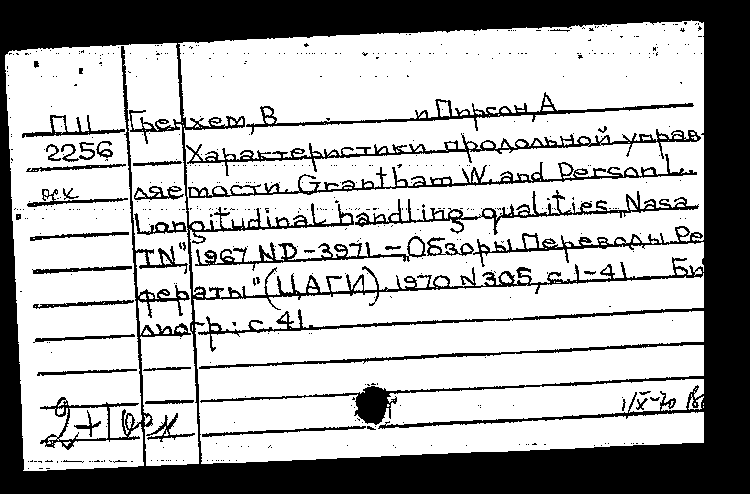 П11 Гренхем, В и Пирсон, А
2256 Характеристики продольной управ-
ляемости. Grantham W. and Person L.
Longitudinal handling qualities „Nasa
TN", 1967, ND-3971 – „Обзоры Переводы Ре
фераты" (ЦАГИ). 1970 N 305, с. 1-41. Би
лиогр.: с. 41.
2+1
1/X-70